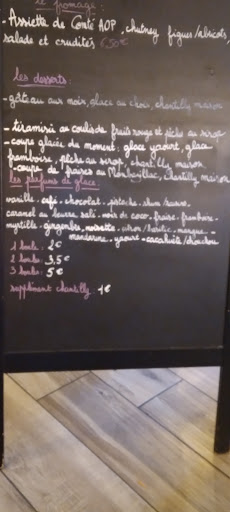 le fromage :
Assiette de Comté AOP, chutney figues/abricots,
salade et crudités 6.50€
les desserts :
- gâteau aux noix, glace au choix, chantilly maison
- tiramisu au coulis de fruits rouge et pêche au sirop
- coupe glacée du moment : glace yaourt, glace
framboise, pêche au sirop, chantilly maison
- coupe de fraises au Monbazillac, chantilly maison
les parfums de glace :
vanille - café - chocolat - pistache - rhum/raisins -
caramel au beurre salé - noix de coco - fraise - framboise -
myrtille - gingembre - noisette - citron/basilic - mangue -
mandarine - yaourt - cacahuète/chouchou
1 boule : 2€
2 boule : 3,5€
3 boule : 5€
supplément chantilly : 1€